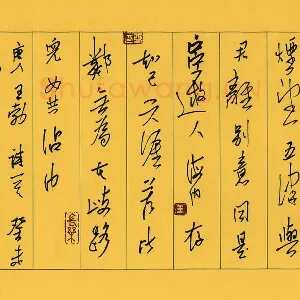 煙望五津與
君離別意同是
宦遊人海内存
知己天涯若比
鄰無為在歧路
兒女共沾巾
唐王勃詩一癸未